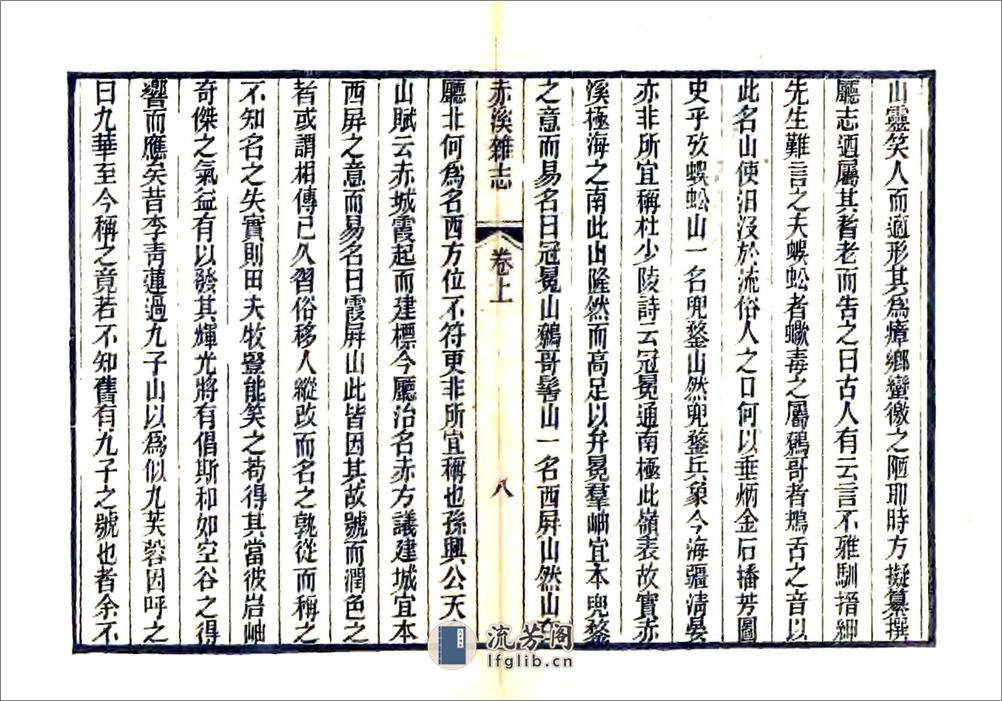 山靈笑人而適形其爲瘴鄉蠻徼之陋耶時方擬纂撰
廳志迺屬其耆老而告之曰古人有云言不雅馴搢紳
先生難言之夫蜈蚣者蠍毒之屬鷯哥者鴂舌之音以
此名山使汨沒於流俗人之口何以垂炳金石播芳圖
史乎攷蜈蚣山一名兜鍪山然兜鍪兵象今海疆淸晏
亦非所宜稱杜少陵詩云冠冕通南極此嶺表故實赤
溪極海之南此山隆然而高足以弁冕羣岫宜本兜鍪
之意而易名曰冠冕山鷯哥髻山一名西屏山然山在
赤溪雜志
卷上
八
廳北何爲名西方位不符更非所宜稱也孫興公天台
山賦云赤城霞起而建標今廳治名赤方議建城宜本
西屏之意而易名曰霞屏山此皆因其故號而潤色之
者或謂相傳已久習俗移人縱改而名之孰從而稱之
不知名之失實則田夫牧豎能笑之苟得其當彼岩岫
奇傑之氣益有以發其輝光將有倡斯和如空谷之得
響而應矣昔李靑蓮過九子山以爲似九芙蓉因呼之
曰九華至今稱之竟若不知舊有九子之號也者余不
流芳阁
lfglib.cn